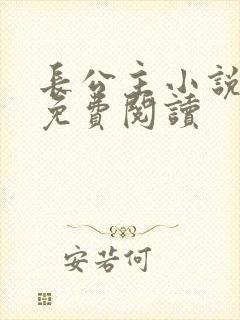 長公主小說
免費閱讀
安若何